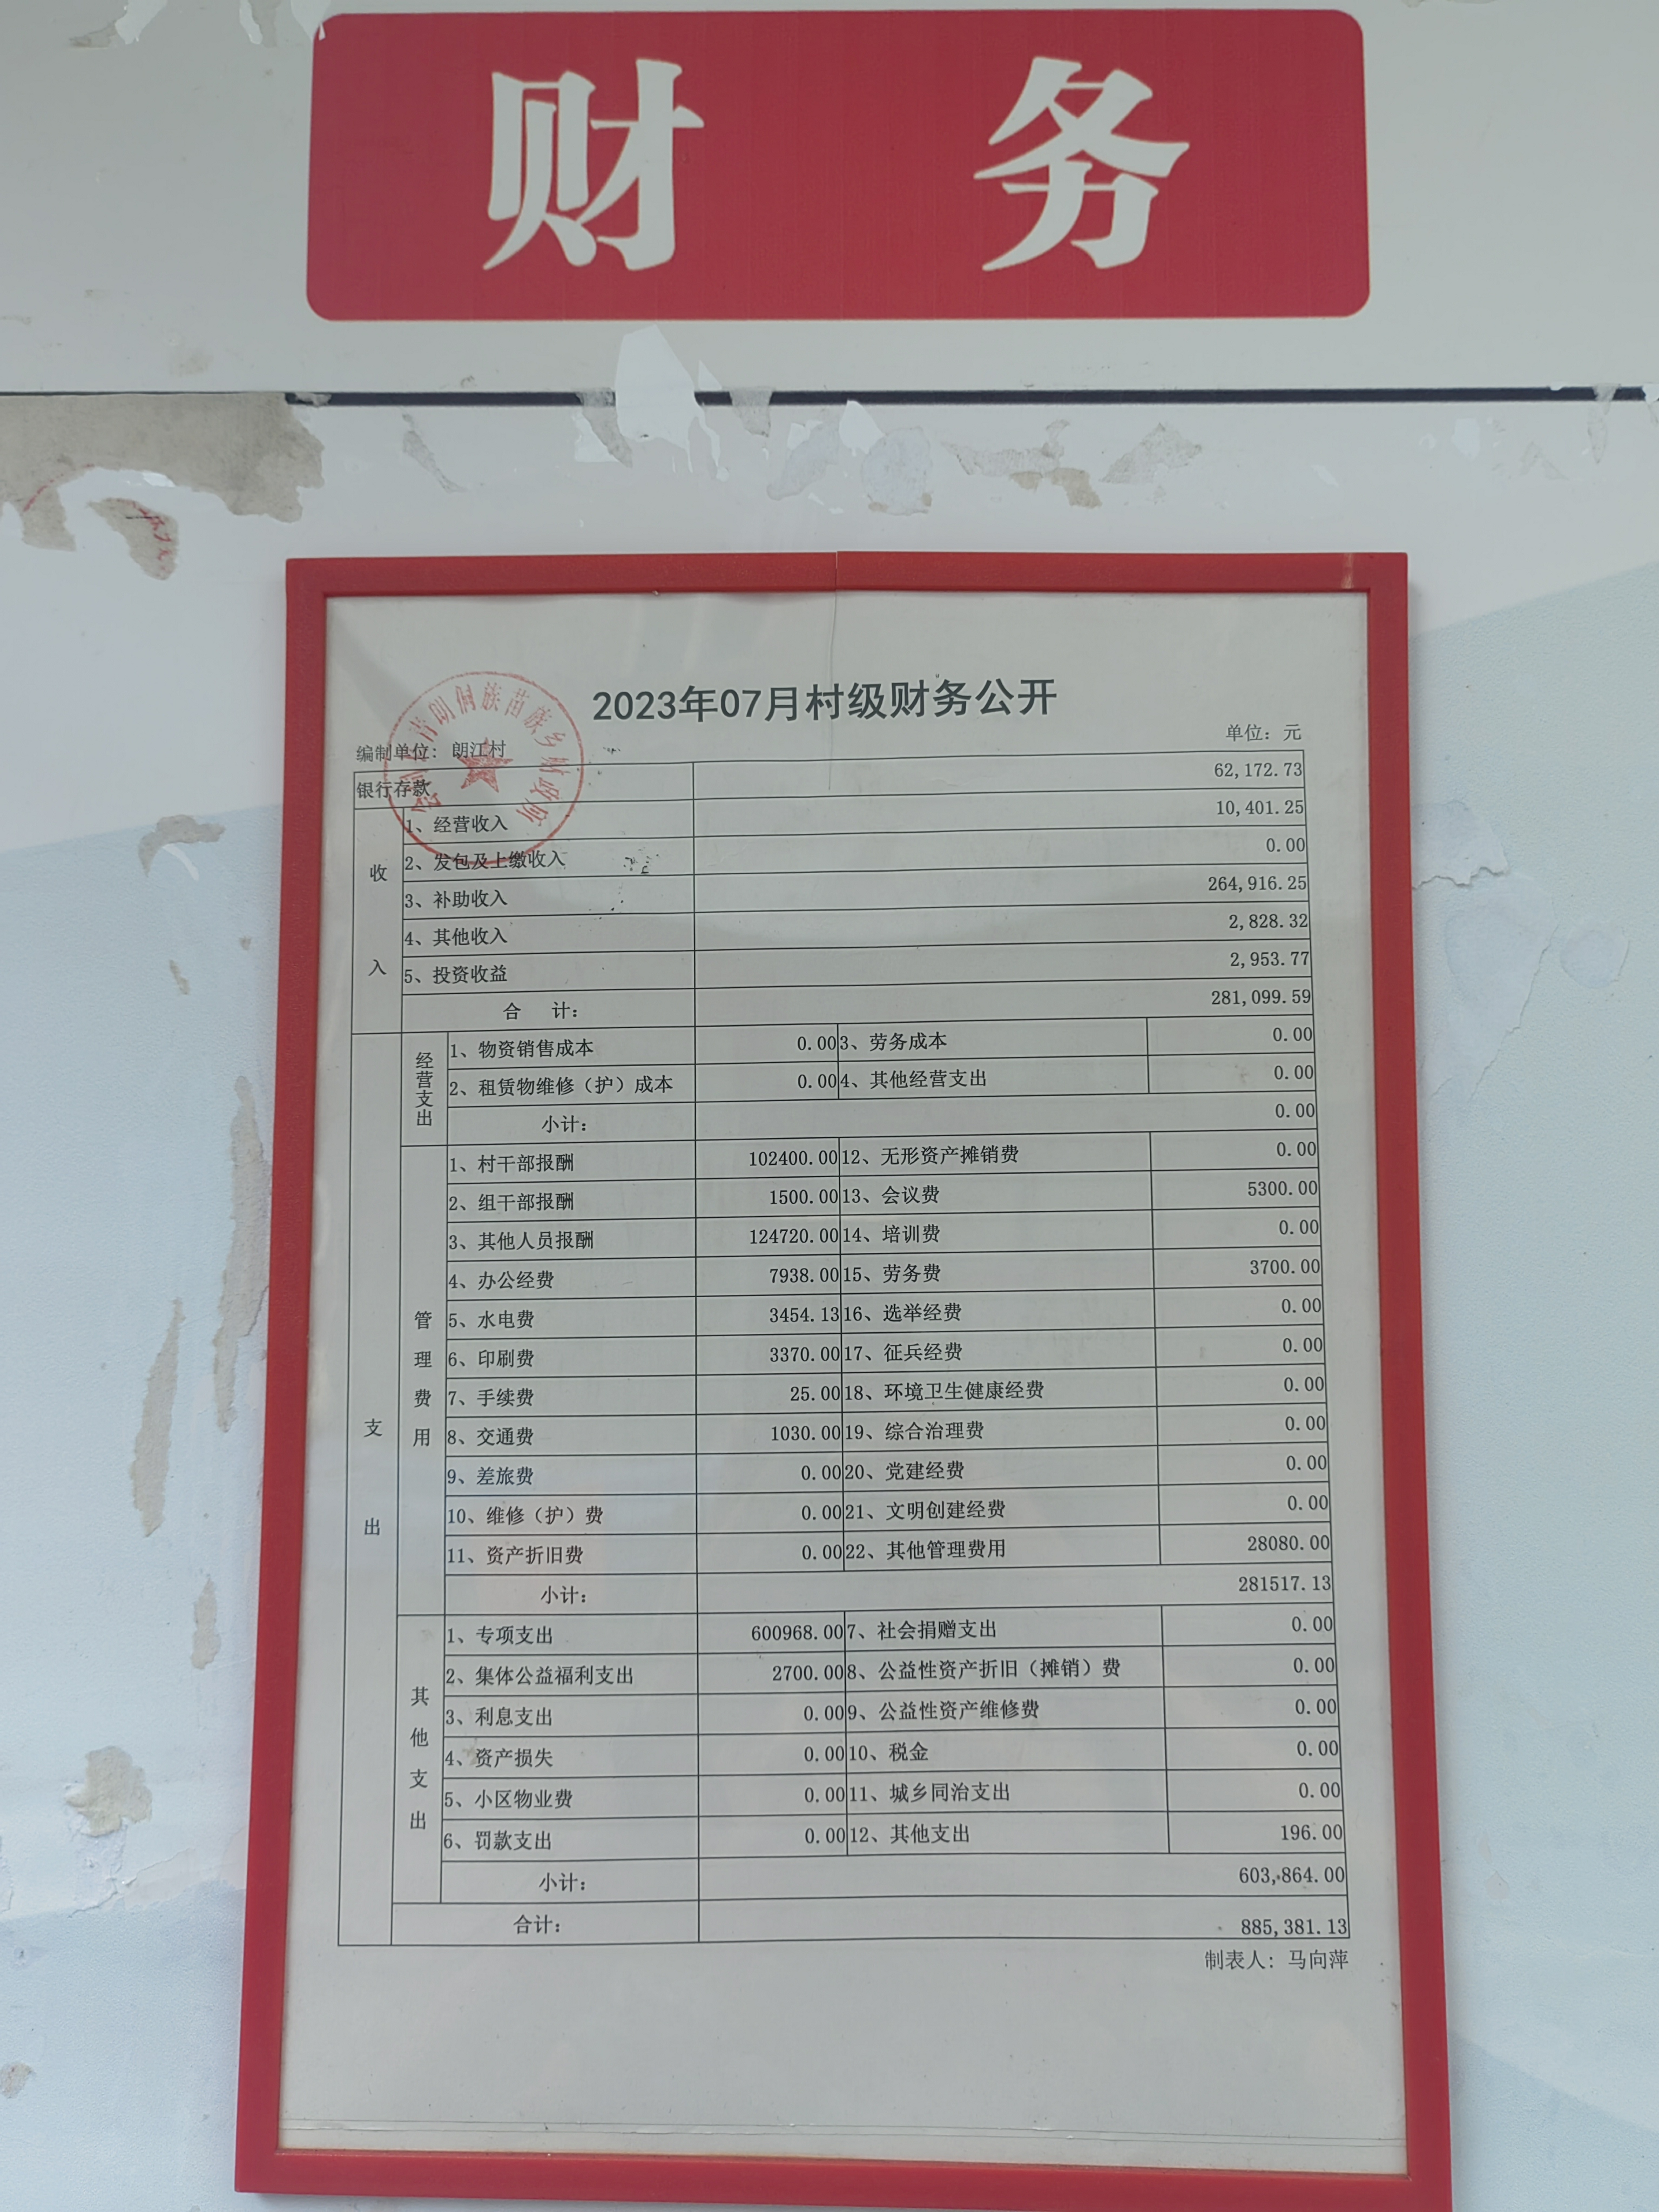 财 务
2023年07月村级财务公开
编制单位：朗江村 单位：元
银行存款 62,172.73
收入
1、经营收入 10,401.25
2、发包及上缴收入 0.00
3、补助收入 264,916.25
4、其他收入 2,828.32
5、投资收益 2,953.77
合 计： 281,099.59
支出
经营支出
1、物资销售成本 0.00 3、劳务成本 0.00
2、租赁物维修（护）成本 0.00 4、其他经营支出 0.00
小计： 0.00
管理费用
1、村干部报酬 102400.00 12、无形资产摊销费 0.00
2、组干部报酬 1500.00 13、会议费 5300.00
3、其他人员报酬 124720.00 14、培训费 0.00
4、办公经费 7938.00 15、劳务费 3700.00
5、水电费 3454.13 16、选举经费 0.00
6、印刷费 3370.00 17、征兵经费 0.00
7、手续费 25.00 18、环境卫生健康经费 0.00
8、交通费 1030.00 19、综合治理费 0.00
9、差旅费 0.00 20、党建经费 0.00
10、维修（护）费 0.00 21、文明创建经费 0.00
11、资产折旧费 0.00 22、其他管理费用 28080.00
小计： 281517.13
其他支出
1、专项支出 600968.00 7、社会捐赠支出 0.00
2、集体公益福利支出 2700.00 8、公益性资产折旧（摊销）费 0.00
3、利息支出 0.00 9、公益性资产维修费 0.00
4、资产损失 0.00 10、税金 0.00
5、小区物业费 0.00 11、城乡同治支出 0.00
6、罚款支出 0.00 12、其他支出 196.00
小计： 603,864.00
合计： 885,381.13
制表人：马向萍
青朗侗族苗族乡财政所